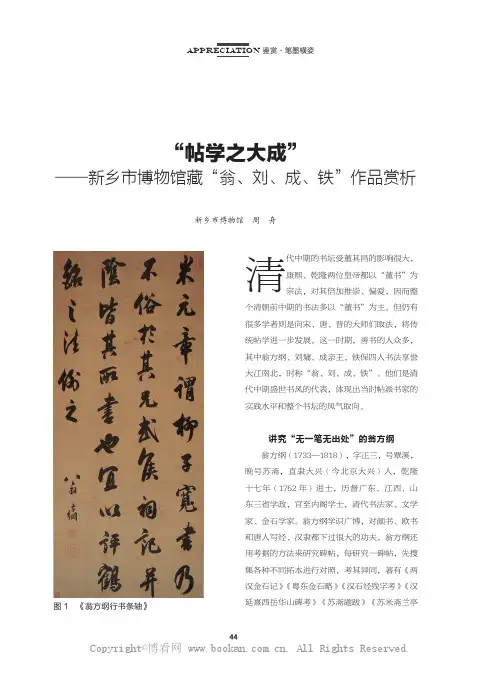 APPRECIATION 鉴赏·笔墨横姿
“帖学之大成”
——新乡市博物馆藏“翁、刘、成、铁”作品赏析
新乡市博物馆 周 舟
米元章謂柳子寬書乃
不俗於其兄武侯祠記并
陰皆其所書也宜以評鶴
銘之法倣之
翁方綱
图 1 《翁方纲行书条轴》
清代中期的书坛受董其昌的影响很大，
康熙、乾隆两位皇帝都以“董书”为
宗法，对其倍加推崇、偏爱，因而整
个清朝前中期的书法多以“董书”为主。但仍有
很多学者则是向宋、唐、晋的大师们取法，将传
统帖学进一步发展。这一时期，善书的人众多，
其中翁方纲、刘墉、成亲王、铁保四人书法享誉
大江南北，时称“翁、刘、成、铁”。他们是清
代中期盛世书风的代表，体现出当时帖派书家的
实践水平和整个书坛的风气取向。
讲究“无一笔无出处”的翁方纲
翁方纲（1733—1818），字正三，号覃溪，
晚号苏斋，直隶大兴（今北京大兴）人，乾隆
十七年（1752 年）进士，历督广东、江西、山
东三省学政，官至内阁学士，清代书法家、文学
家、金石学家。翁方纲学识广博，对颜书、欧书
和唐人写经、汉隶都下过很大的功夫。翁方纲还
用考据的方法来研究碑帖，每研究一碑帖，先搜
集各种不同拓本进行对照，考其异同，著有《两
汉金石记》《粤东金石略》《汉石经残字考》《汉
延熹西岳华山碑考》《苏斋题跋》《苏米斋兰亭
44
Copyright©博看网 www.bookan.com.cn. All Rights Reserved.